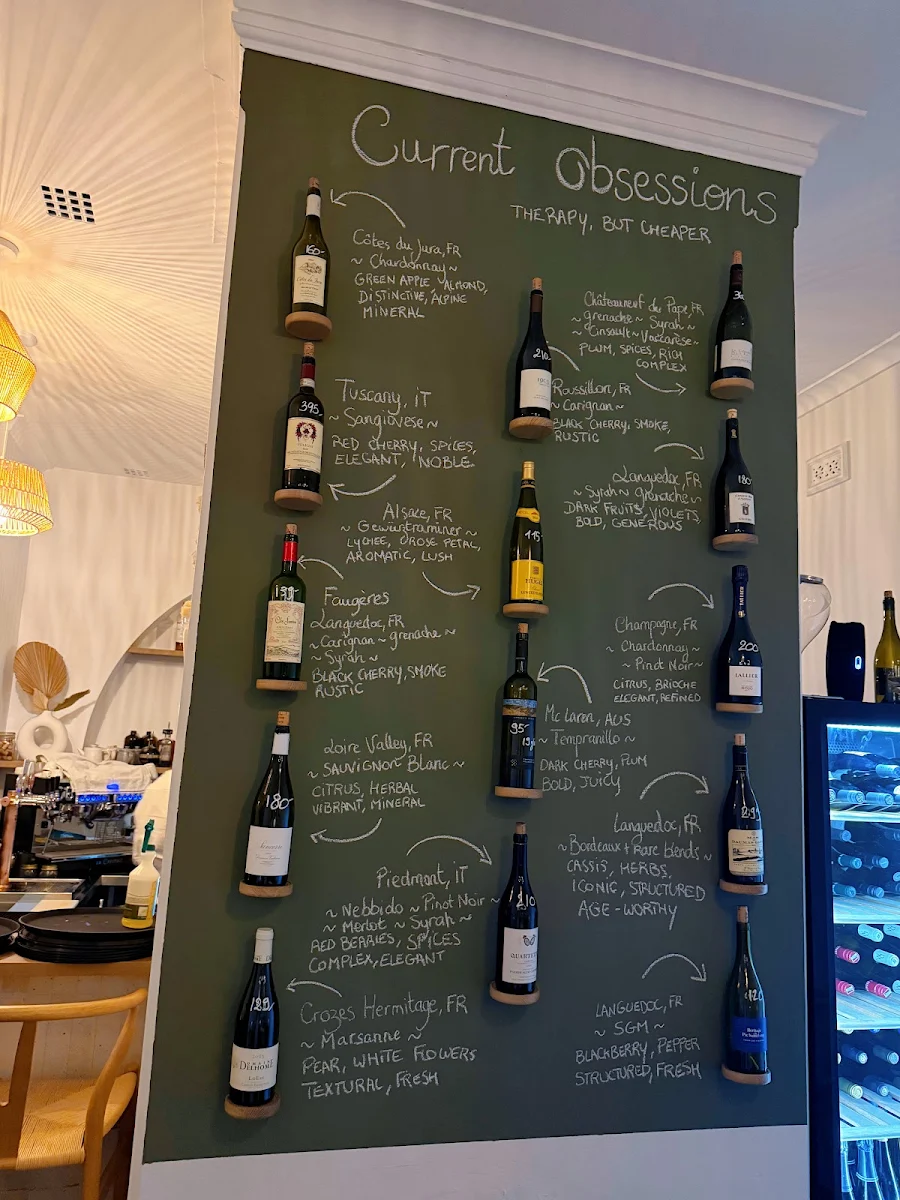 Current Obsessions
THERAPY, BUT CHEAPER
160-
Côtes du Jura, FR
~ Chardonnay ~
GREEN APPLE ALMOND,
DISTINCTIVE, ALPINE
MINERAL
395-
Tuscany, IT
~ Sangiovese ~
RED CHERRY, SPICES,
ELEGANT, NOBLE
Alsace, FR
~ Gewürztraminer ~
LYCHEE, ROSE PETAL,
AROMATIC, LUSH
Faugères
Languedoc, FR
~ Carignan ~ grenache ~
~ Syrah ~
BLACK CHERRY, SMOKE
RUSTIC
180-
Loire Valley, FR
~ SAUVIGNON Blanc ~
CITRUS, HERBAL
VIBRANT, MINERAL
Piedmont, IT
~ Nebbido ~ Pinot Noir ~
~ Merlot ~ Syrah ~
RED BERRIES, SPICES
COMPLEX, ELEGANT
129-
DELHOME
Crozes Hermitage, FR
~ Marsanne ~
PEAR, WHITE FLOWERS
TEXTURAL, FRESH
210-
Roussillon, FR
~ Carignan ~
BLACK CHERRY, SMOKE,
RUSTIC
115-
HUGEL
95-
Mc Laren, AUS
~ Tempranillo ~
DARK CHERRY, PLUM
BOLD, JUICY
210
QUARTET
Châteauneuf du Pape, FR
~ grenache ~ Syrah ~
~ Cinsault ~ Vaccarèse ~
PLUM, SPICES, RICH
COMPLEX
180-
Languedoc, FR
~ Syrah ~ grenache ~
DARK FRUITS, VIOLETS,
BOLD, GENEROUS
200
LALLIER
Champagne, FR
~ Chardonnay ~
~ Pinot Noir ~
CITRUS, BRIOCHE
ELEGANT, REFINED
Languedoc, FR
~ Bordeaux + Rare blends ~
CASSIS, HERBS,
ICONIC, STRUCTURED
AGE-WORTHY
LANGUEDOC, FR
~ SGM ~
BLACKBERRY, PEPPER
STRUCTURED, FRESH